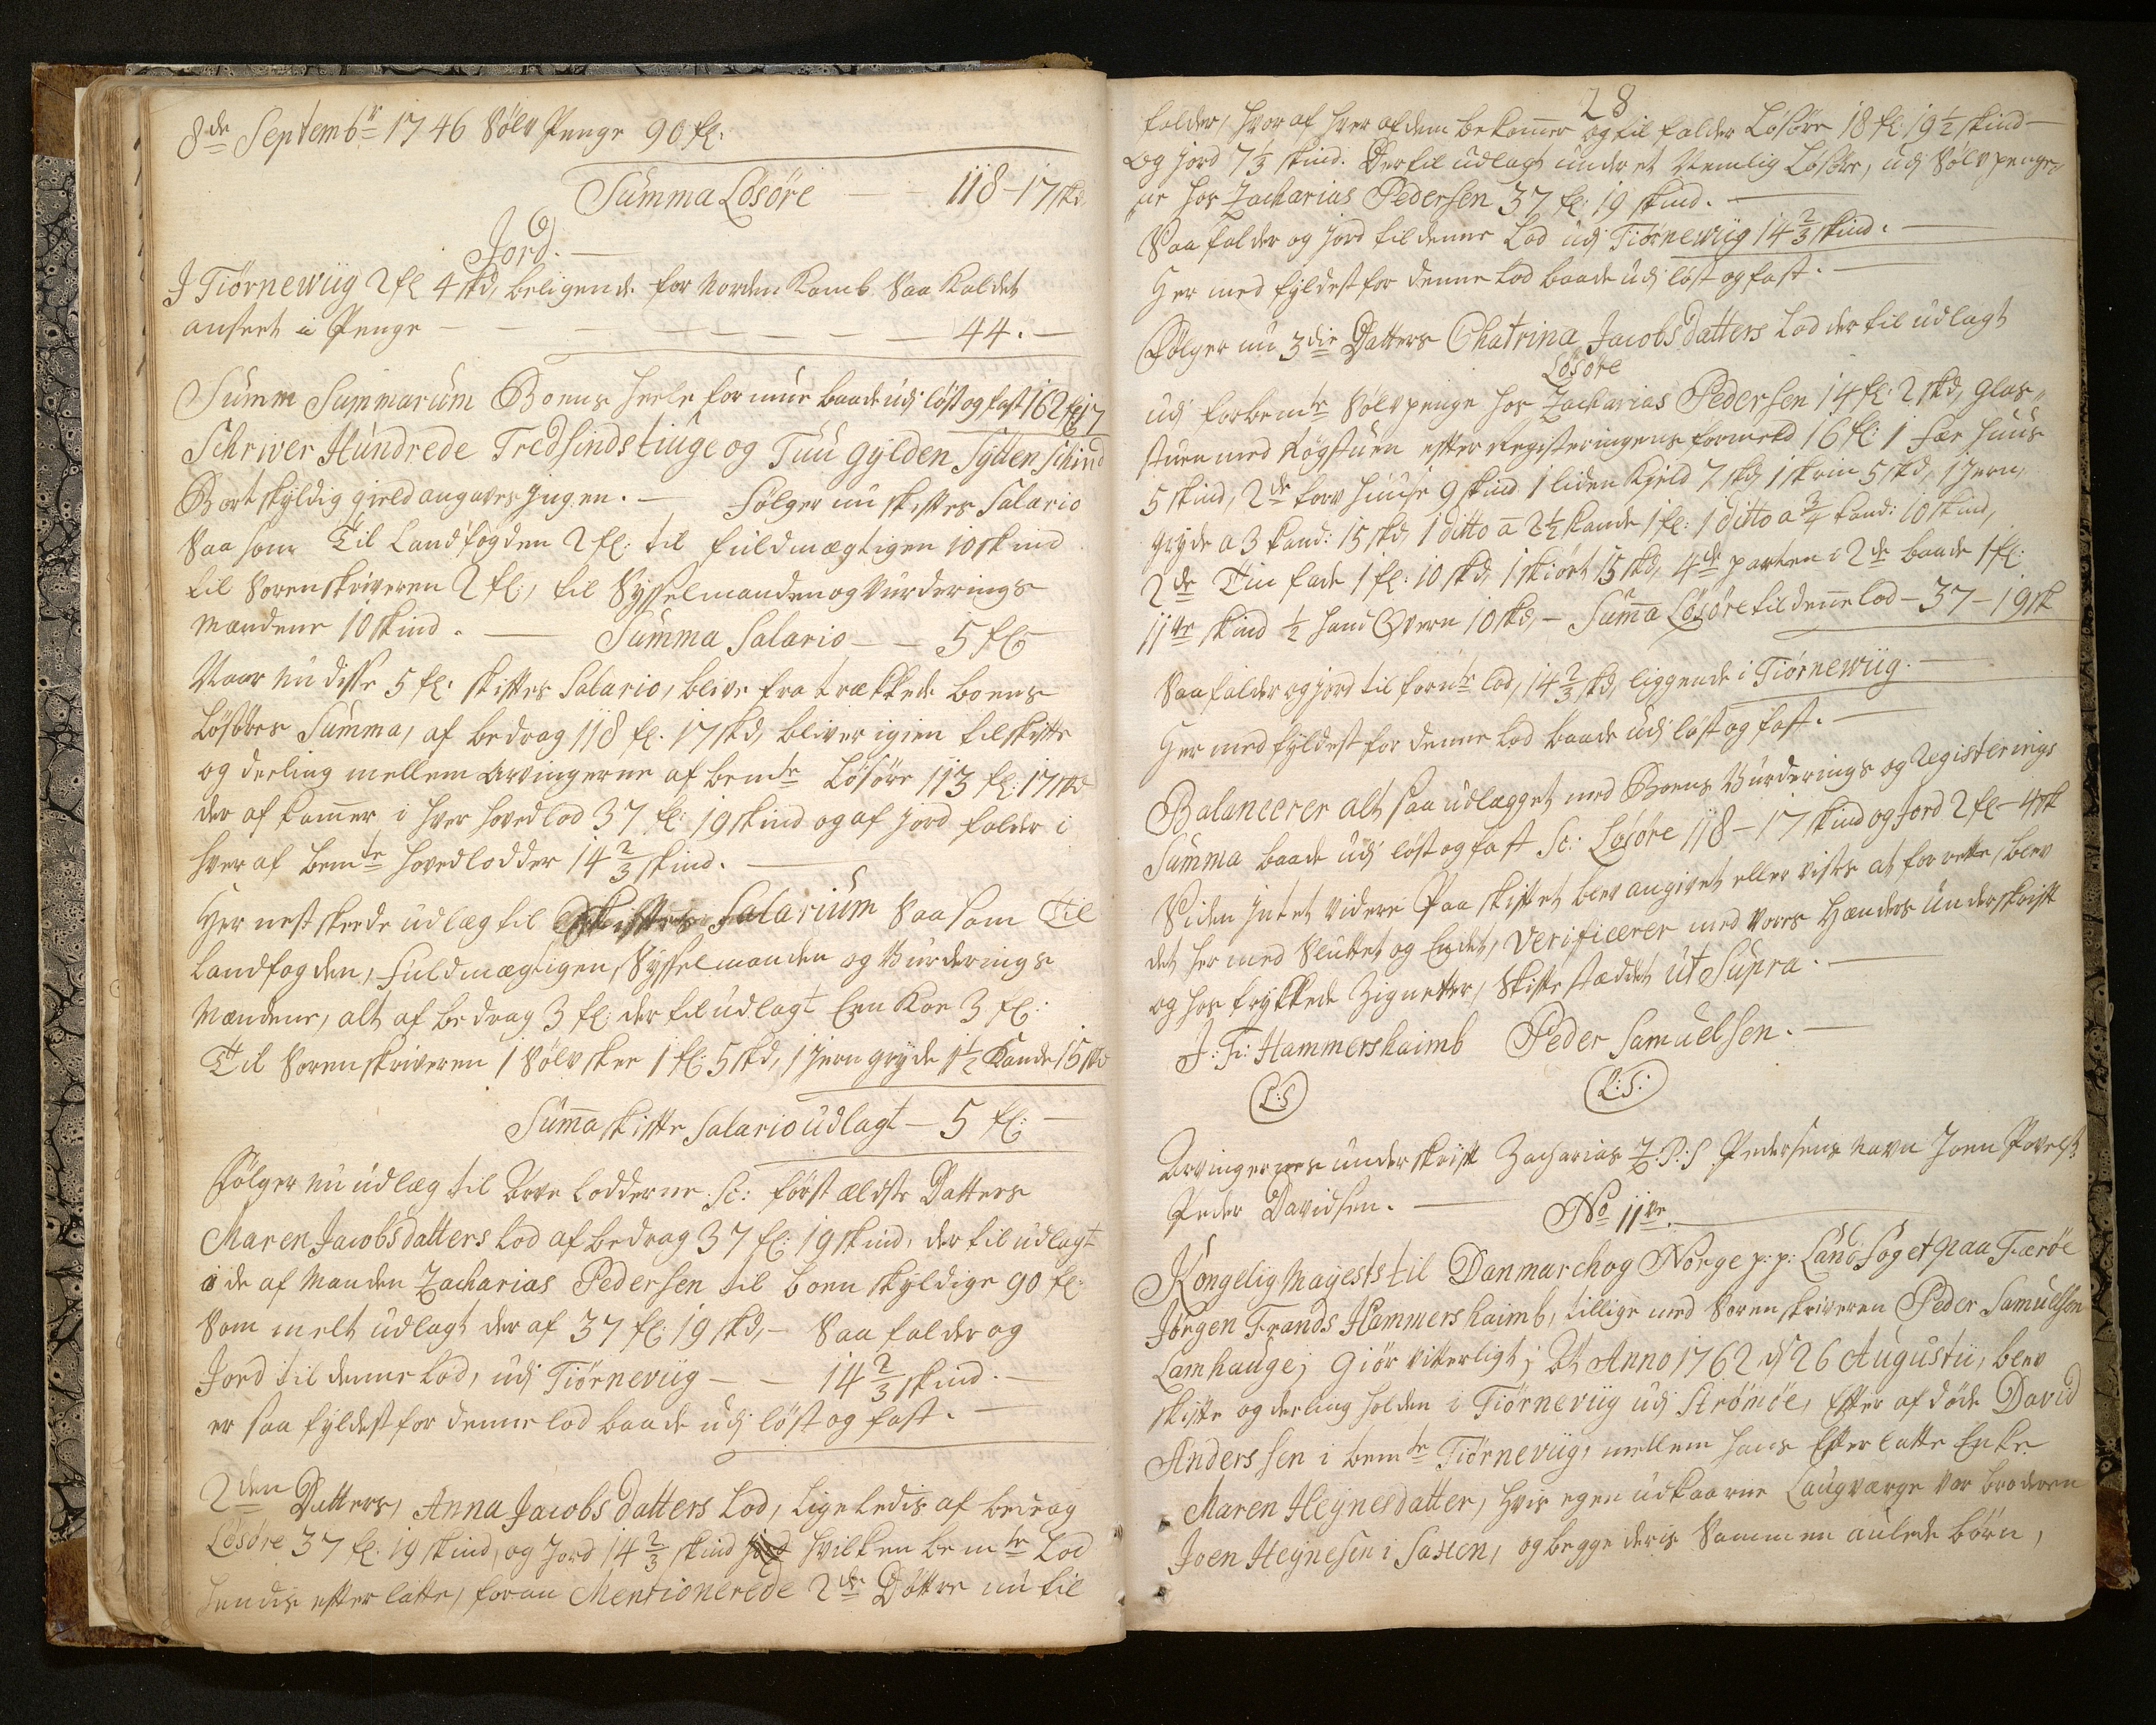 8de Septembr 1746 Sölv Penge 90 fl:
Summa Lösöre — - 118-17 skd
Jord. —
J Tiörnewiig 2 fl 4 skd, beligende for Norden Kamb Saa Kaldet
ansert i Penge — — — — — — — 44. —
Summ Summarum Boens heele formue baade udj löst og fast 162 fl 17
Schriver Hundrede Tredsindstiuge og Tuu gylden Sytten Schind
Bort skyldig gield angaves Jngen. — Fölger nu skiftes Salario
Saa som Til Landfogden 2 fl: til fuldmægtigen 10 skind
til Sorenskriveren 2 fl:, til Sysselmanden og Vurderings
Mændene 10 skind. — Summa Salario — - 5 fl
Naar nu disse 5 fl: skiftes Salario, blive fratrækkede boens
Lösöres Summa, af bedrag 118 fl. 17 skd, bliver igien til skifte
og deeling mellem Arvingerne af bemte Lösöre 113 fl: 17 skd
der af kommer i hver hovedlod 37 fl: 19 skind og af jord falder i
hver af bemte hovedlodder 14 2/3 skind. —
Her nest skeede udlæg til Skiftes Salarium Saa som Til
Landfogden, Fuldmægtigen, Sysselmanden og Vurderings
Mændene, alt af bedrag 3 fl: der til udlagt Een Koe 3 fl:
Til Sorenskriveren 1 Sölv skee 1 fl: 5 skd, 1 Jern gryde 1 1/2 Kande 15 skd
Summa skifte Salario udlagt — 5 fl: —
Fölger nu udlæg til Arve Lodderne Sc: först ældste Datters
Maren Jacobsdatters Lod af bedrag 37 fl: 19 skind, der til udlagt
i de af Manden Zacharias Pedersen til boen skyldige 90 fl:
Som melt udlagt der af 37 fl: 19 skd, — Saa falder og
Jord til denne Lod, udj Tiörneviig — - 14 2/3 skind. —
er saa fyldest for denne lod baade udj löst og fast. —
2den Datters, Anna Jacobsdatters Lod, ligeledis af bedrag
Lösöre 37 fl. 19 skind, og Jord 14 2/3 skind hvilken bemte Lod
hendis efterlatte, foran Mentionerede 2de Döttre nu til
28
falder, hvor af hver af dem bekommer og til falder Lösöre 18 fl: 19 1/2 skind —
og jord 7 1/3 skind. Der til udlagt under et Nemlig Lösöre, udj Sölv penge-
ne hos Zacharias Pedersen 37 fl: 19 skind. —
Saa falder og jord til denne Lod udj Tiörnewiig 14 2/3 skind. —
Her med fyldest for denne Lod baade udj löst og fast. —
Fölger nu 3die Datters Chatrina Jacobsdatters Lod der til udlagt
Lösöre
udj forbemte Sölvpenge hos Zacharias Pedersen 14 fl: 2 skd, Glas"
stuen med Rögstuen efter Registeringens formeld 16 fl: 1 Fæe huus
5 skind, 2de torv huuse 9 skind 1 liden Kield 7 skd, 1 skrin 5 skd, 1 Jern
gryde a 3 kand: 15 skd, 1 ditto a 2 1/2 kande 1 fl: 1 ditto a 3/4 kand: 10 skind,
2de Tin fade 1 fl: 10 skd, 1 skiört 15 skd, 4de parten i 2de baade 1 fl:
11 skind 1/2 hand Qvern 10 skd, — Summa Lösöre til denne lod — 37 — 19 sk
Saa falder og jord til fornte lod, 14 2/3 skd, liggende i Tiörnewiig. —
Her med fyldest for denne Lod baade udj löst og fast. —
Balancerer alt saa udlægget med Boens Vurderings og Registerings
Summa baade udj löst og fast Sc: Lösöre 118 — 17 skind og Jord 2 fl — 4 sk
Siden jntet videre Paa skiftet blev angivet eller vistes at forrette, blev
det her med Sluttet og Endet, Verificerer med vores Hænders Underskrift
og hos trykkede Zignetter, Skifte stæddet ut Supra. —
J: Fr: Hammershaimb Peder Samuelsen. —
L:S L:S:
Arvingernes underskrift Zacharias Z: P: S Pedersens Navn Joen Povels:
Peder Davidsen. —
No 11ve. —
Kongelig Mayests til Danmarch og Norge p: p: Landfoget paa Færöe
Jörgen Frands Hammershaimb, tillige med Sorenskriveren Peder Samuelsen
Lamhauge; Giör vitterligt; At Anno 1762 d 26 Augustii, blev
skifte og deeling holden i Tiörneviig udj Strömöe, Efter af döde David
Anderssen i bemte Tiörneviig, mellem hans Efterlatte Enke
Maren Heynesdatter, hvis egen udkaarne Laugværge var broderen
Joen Heynesen i Saxen, og begge deris Sammen aulede börn,